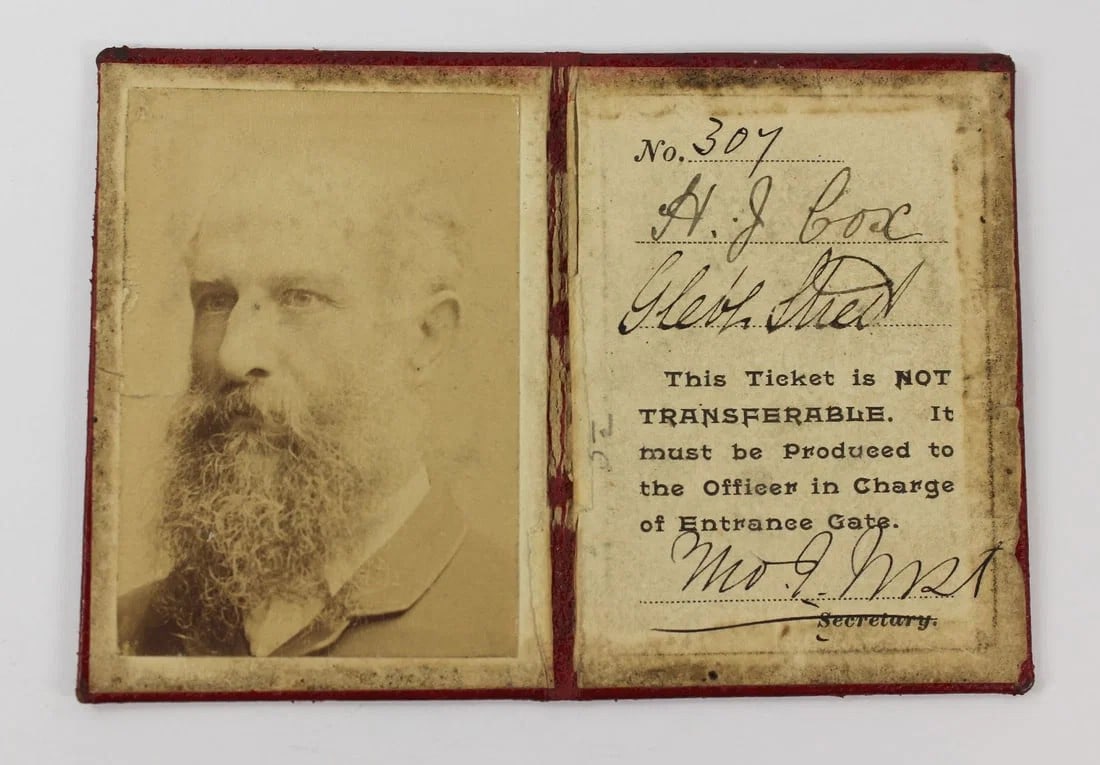 No. 307
H. J Cox
Glebe Street
This Ticket is NOT
TRANSFERABLE. It
must be Produced to
the Officer in Charge
of Entrance Gate.
J. West
Secretary.